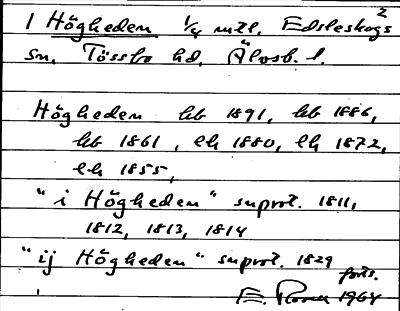 2
1 Högheden 1/4 mtl, Edsleskogs
sn, Tössbo hd, Älvsb. l.
Högheden hb 1891, hb 1886,
hb 1861, eh 1880, eh 1872,
eh 1855,
"i Högheden" suprot. 1811,
1812, 1813, 1814
"ij Högheden" suprot. 1829
forts.
E. 1964